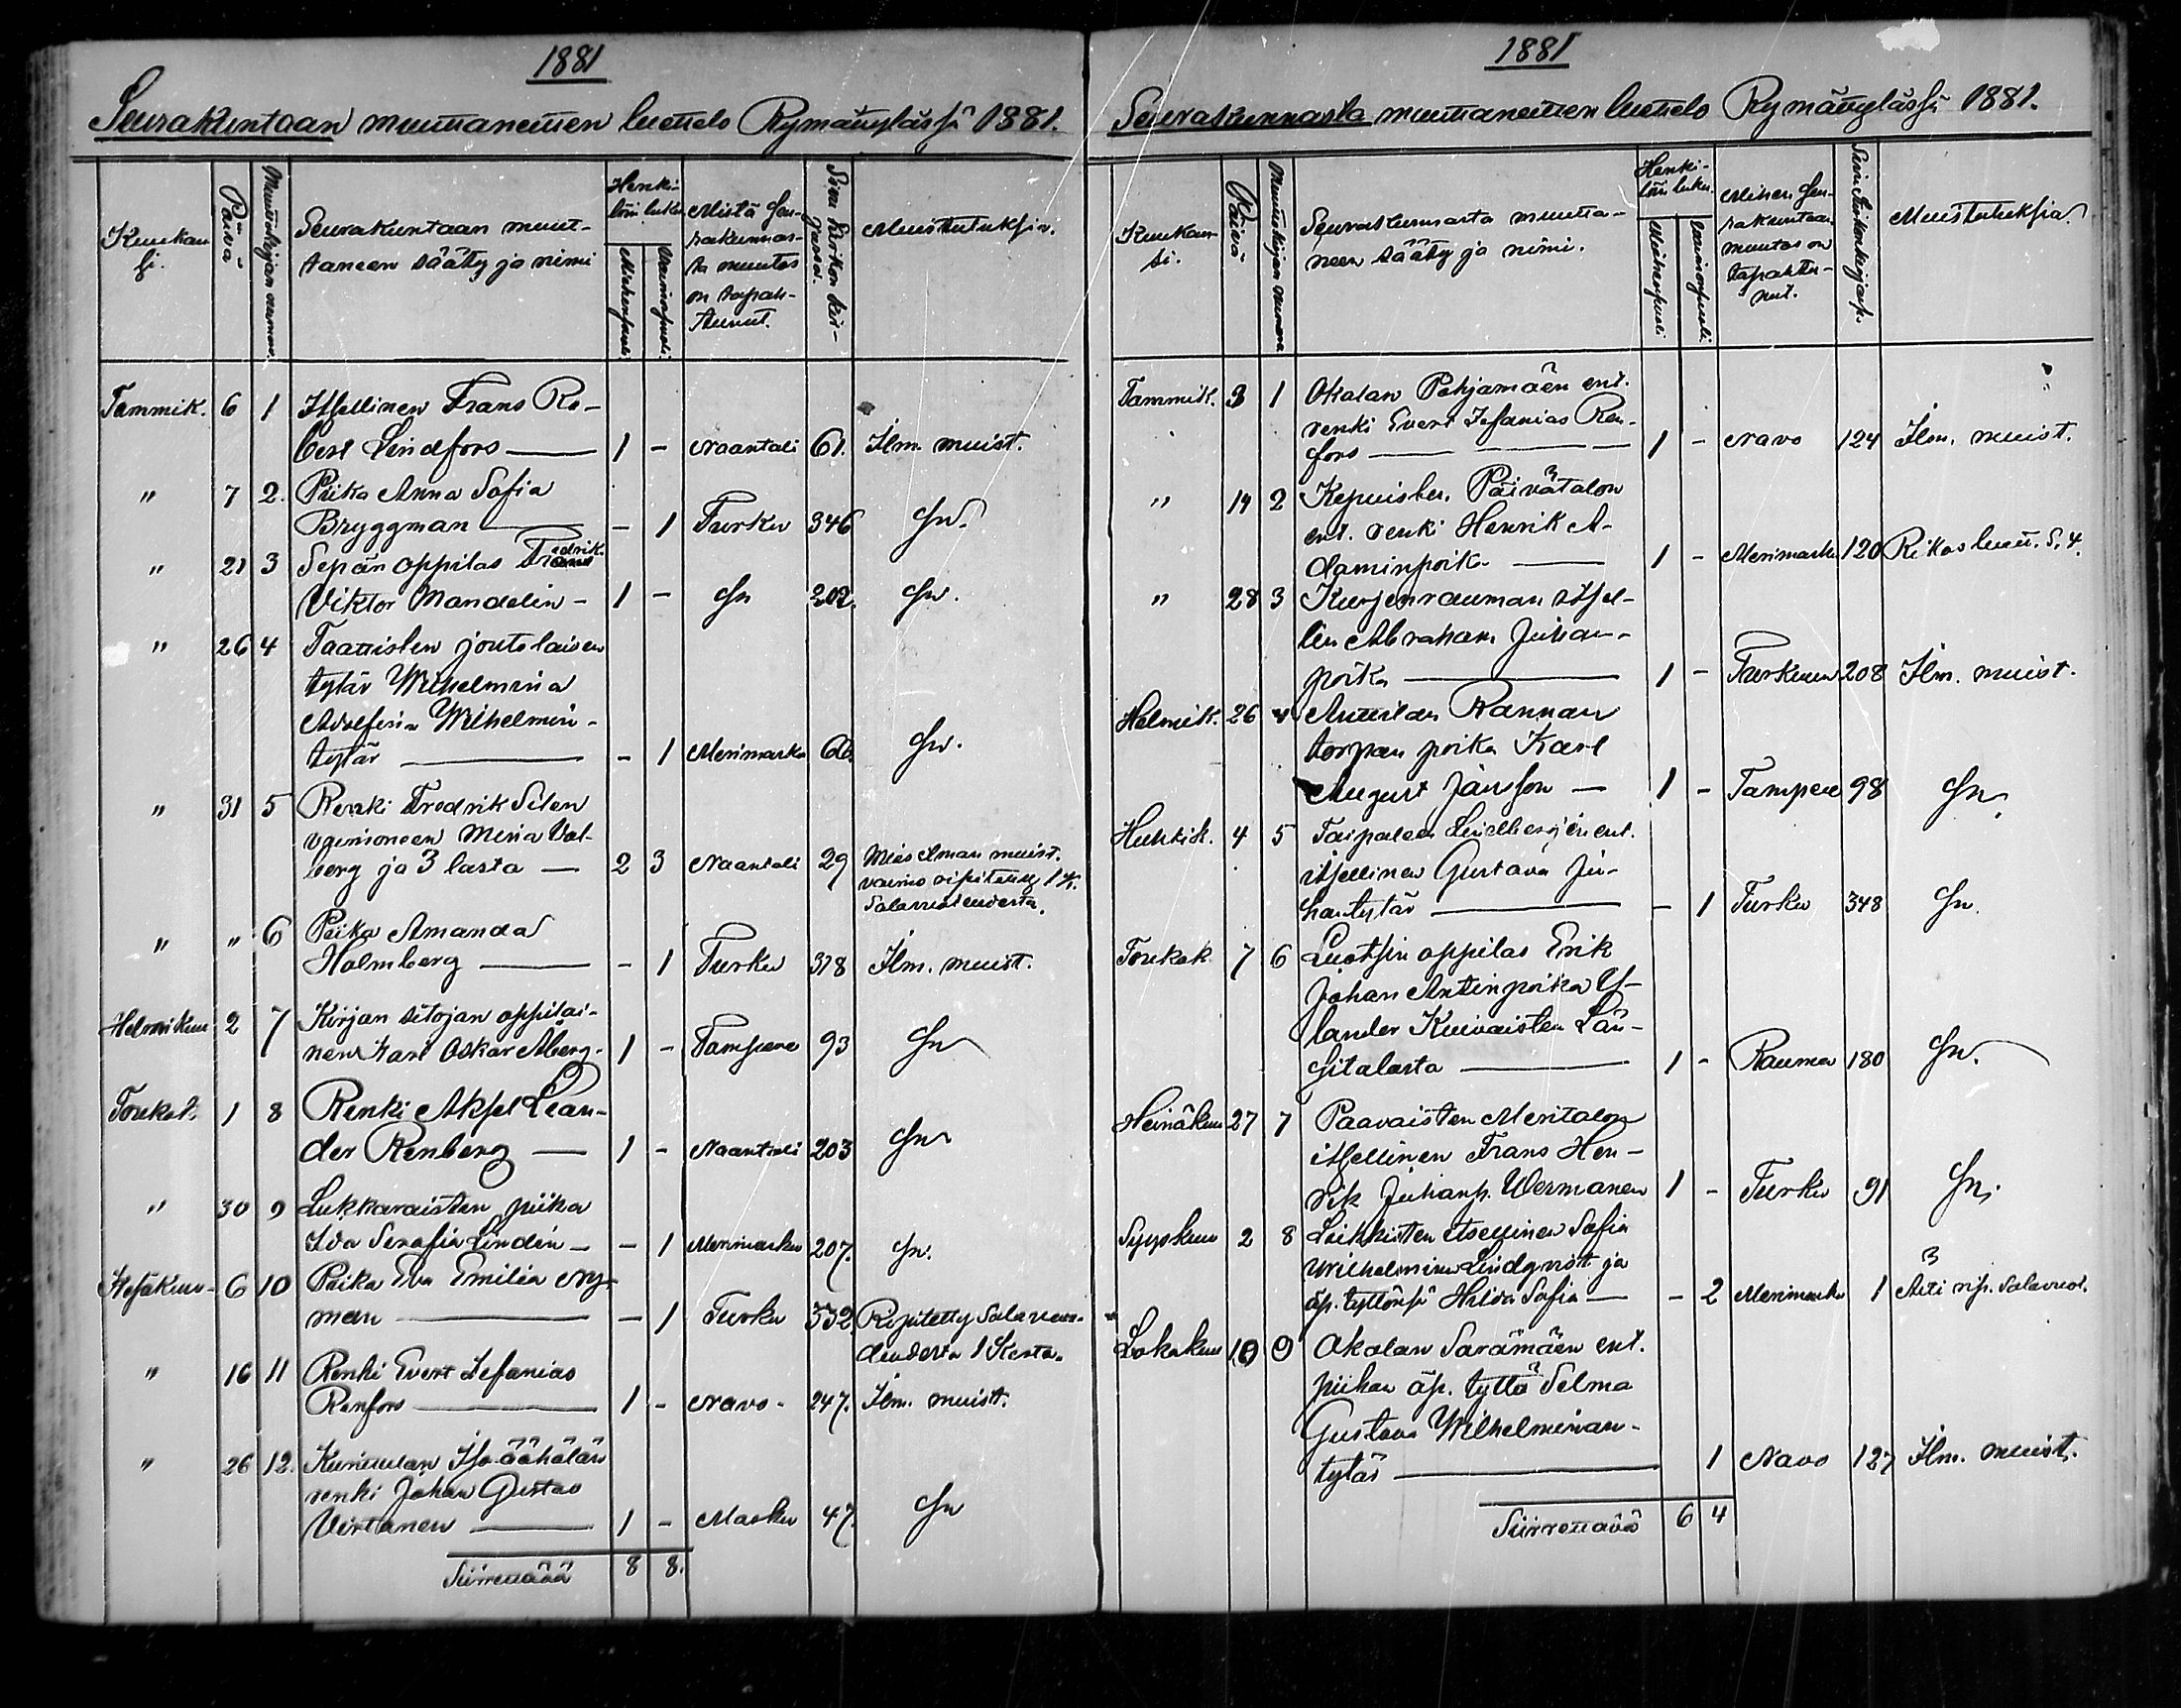 1881
Seurakuntaan muuttaneitten luettelo Rymättylässä 1881.
Kuukausi.
Päivä
Muuttokirjan numero.
Seurakuntaan muut-
taneen sääty ja nimi
Henki-
löin luku.
Miehenpuoli
Vaimonpuoli.
Mistä seu-
rakunnas-
ta muutos
on tapah-
tunut.
Sivu Kirkon kir-
jassa.
Muistutuksia.
Tammik. 6 1 Itsellinen Frans Ro-
bert Lindfors — 1 - Naantali 61. Ilm. muist.
" 7 2. Piika Anna Sofia
Bryggman — - 1 Turku 346 Sn.
" 21 3 Sepän oppilas Fredrik
Viktor Mandelin - 1 - Sn 202. Sn.
" 26 4 Taattisten joutolaisen
tytär Wilhelmina
Adolfina Wilhelmin-
tytär — - 1 Merimasku 66. Sn.
" 31 5 Renki Fredrik Silen
vaimoneen Miina Val-
berg ja 3 lasta — 2 3 Naantali 29 Mies ilman muist.
vaimo ripitetty 1 K.
Salavuoteudesta.
" " 6 Piika Amanda
Holmberg — - 1 Turku 378 Ilm. muist.
Helmikuu 2 7 Kirjan sitojan oppilai-
nen Karl Oskar Åberg. 1 - Tampere 93 Sn
Toukok. 1 8 Renki Aksel Lean-
der Renberg — 1 - Naantali 203 Sn
" 30 9 Lukkaraisten piika
Ida Serafia Lindin — - 1 Merimasku 207. Sn.
Kesäkuu - 6 10 Piika Eva Emilia Ny-
man — - 1 Turku 332. Ripitetty Salavuo-
deudesta 1 Kerta.
" 16 11 Renki Evert Sefanias
Renfors — 1 - Navo - 247. Ilm. muist.
" 26 12. Kuristulan Iso-äähälän
renki Johan Gustav
Virtanen — 1 - Masku 47. Sn
Siirrettävä 8 8.
1881
Seurakunnasta muuttaneitten luettelo Rymättylässä 1881.
Kuukau-
si.
Päivä
Muuttokirjan numero
Seurakunnasta muutta-
neen sääty ja nimi.
Henki-
löin luku.
Miehenpuoli
Vaimonpuoli
Mihen seu-
rakuntaan
muutos on
tapahtu-
nut.
Sivu Kirkonkirjassa.
Muistutuksia.
Tammik. 3 1 Okolan Pohjamäen ent.
renki Evert Sefanias Ren-
fors — 1 - Navo 124 Ilm. muist.
" 14 2 Kepuisten Päivätalon
ent. renki Henrik A-
daminpoika — 1 - Merimasku 120 Rikos luett. S. 4.
" 28 3 Kurjenrauman itsel-
lin Abraham Juhan-
poika — 1 - Turkuun 208 Ilm. muist.
Helmik. 26 4 Anttilan Rannan
torpan poika Karl
August Jansson — 1 - Tampere 98 Sn.
Huhtik. 4 5 Taipaleen Lindbergin ent.
itsellinen Gustava Ju-
hantytär — - 1 Turku 348 Sn.
Toukok 7 6 Luotsin oppilas Erik
Johan Antinpoika Y-
lander Kuivaisten Län-
sitalosta — 1 - Rauma 180 Sn.
Heinäkuu 27 7 Paavaisten Meritalon
itsellinen Frans Hen-
rik Juhanp. Wermanen 1 - Turku 91 Sn.
Syyskuu 2 8 Leikkisten itsellinen Sofia
Wilhelmina Lindqvist ja
äp. tyttönsä Hilda Sofia — - 2 Merimasku 1 Äiti rip. Salavuot.
Lokakuu 10 9 Okolan Sarämäen ent.
piikan äp. tyttö Selma
Gustava Wilhelminan-
tytär — 1 Navo 127 Ilm. muist.
Siirrettävä 6 4